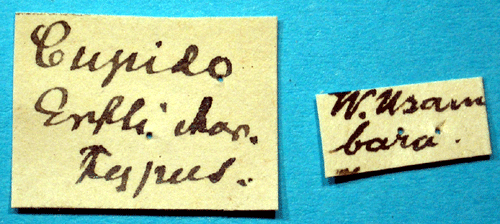 Cupido
Ertli. Kar.
Typus.
W. Usam
bara.